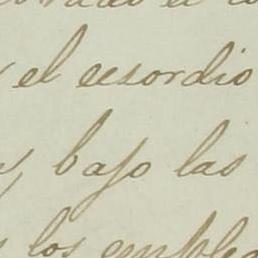 y el eesordio
y bajo las
los emplea